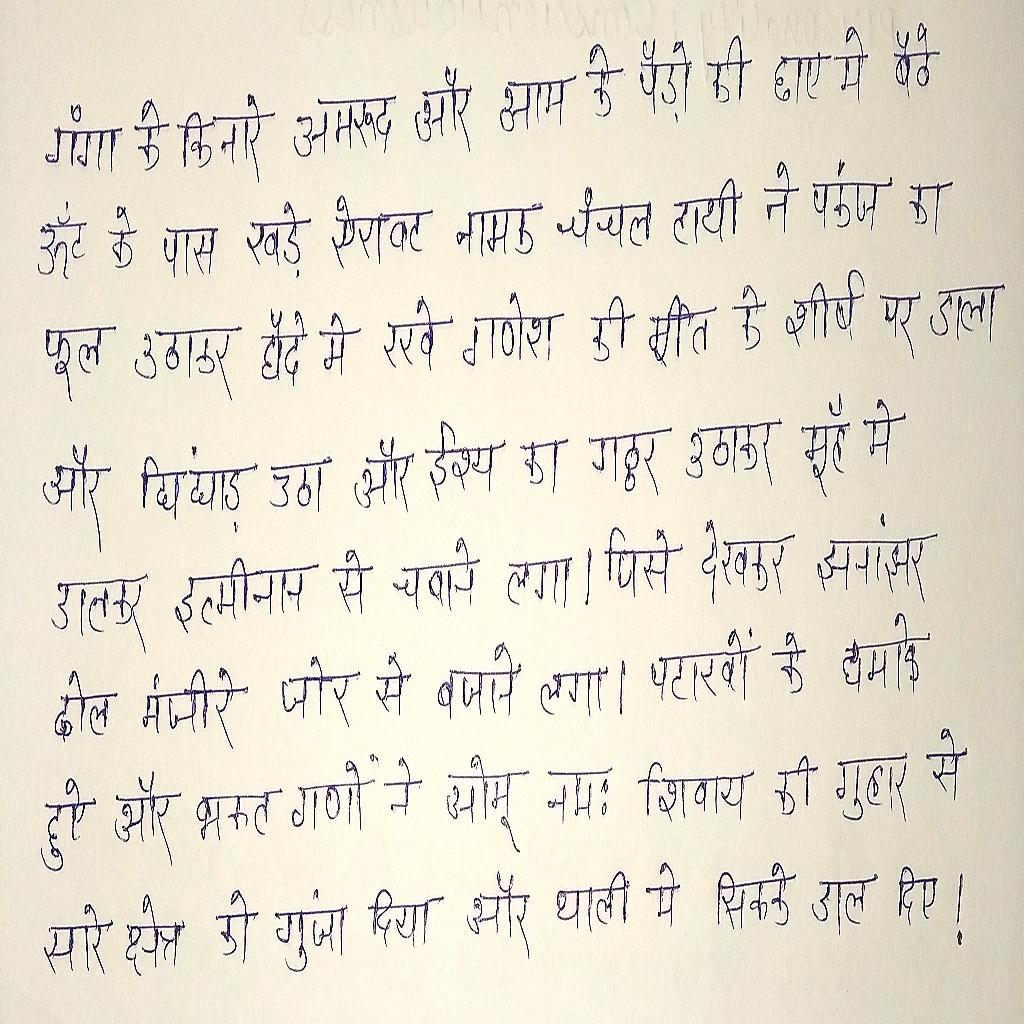 गंगा के किनारे अमरूद और आम के पेड़ो की छाए मे बैठे
ऊँट के पास खड़े ऐरावट नामक चंचल हाथी ने पकंज का
फूल उठाकर हौदे मे रखे गणेश की मूर्ति के शीर्ष पर डाला
और चिंघाड़ उठा और ईश्य का गठ्ठर उठाकर मूहँ मे
डालकर इत्मीनान से चबाने लगा। जिसे देखकर झनांझर
ढोल मंजीरे जोर से बजाने लगा। पटाखों के धमाके
हुऐ और भक्त गणों ने ओम् नमः शिवाय की गुहार से
सारे क्षेत्र को गुंजा दिया और थाली मे सिक्के डाल दिए!